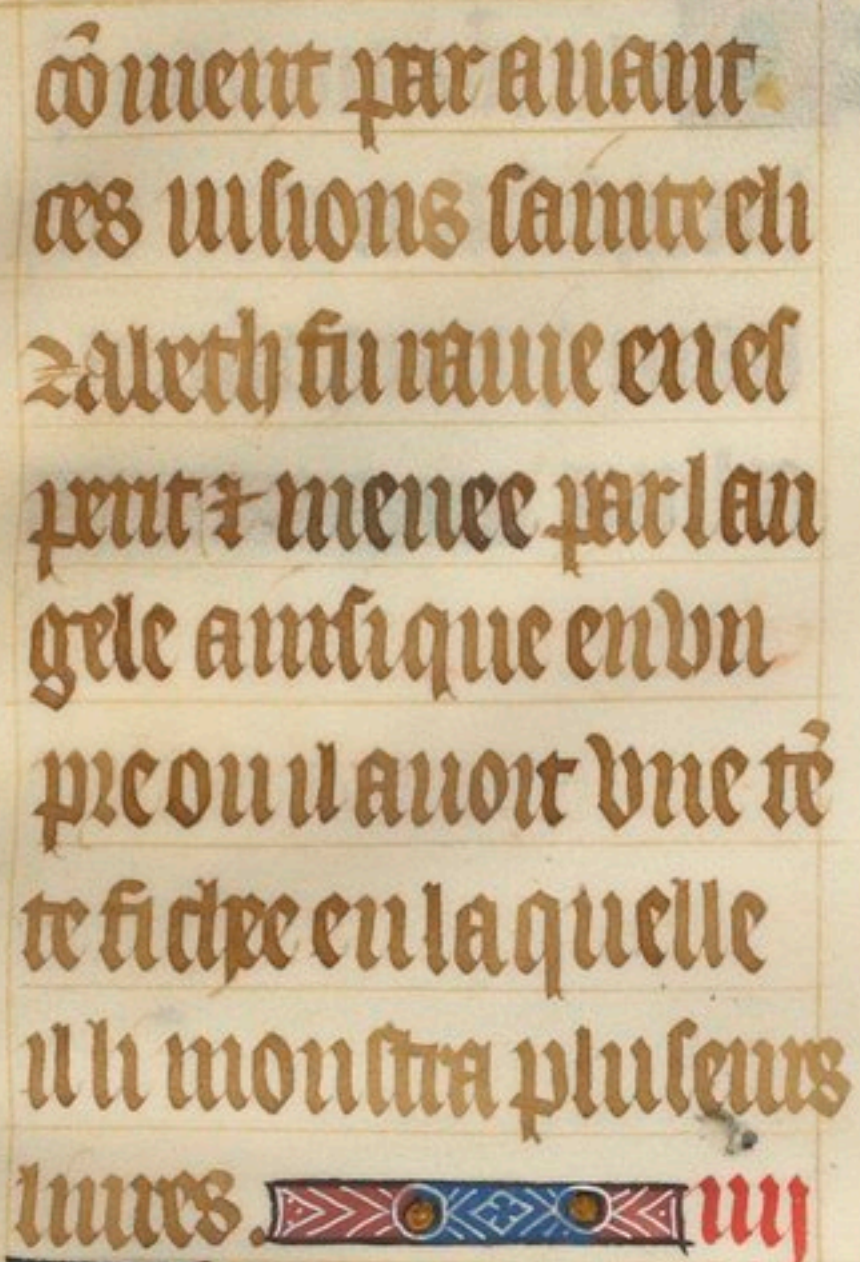 cõment par auant
ces uisions sainte eli
zabeth fu rauie en es
perit ⁊ menee par lan
gele ainsi que en vn
pre ou il auoit vne tẽ
te fichee en laquelle
il li monstra pluseurs
liures. iiij